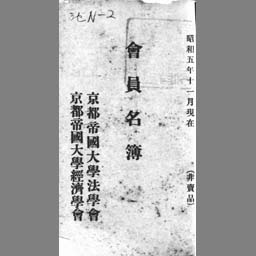 昭和五年十一月現在
(非賣品)
會員名簿
京都帝國大學法學會
京都帝國大學經濟學會